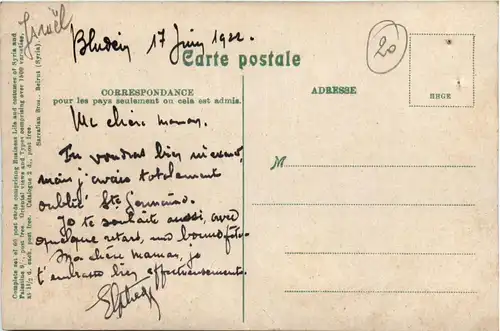 Israël
Bludan 17 Juin 1922.
20
Carte postale
CORRESPONDANCE
pour les pays seulement ou cela est admis.
ADRESSE
BHGE
Ma chère maman,
Tu voudras bien m'excuser,
mais j'avais totalement
oublié Ste Germaine.
Je te souhaite aussi, avec
quelque retard, une bonne fête.
Ma chère maman, je
t'embrasse bien affectueusement.
M
Complete set of 60 post cards comprising Business Life and costumes of Syria and
Palestine post free. Oriental views and Types comprising over 1000 varieties,
at 1½ d. each, post free. Catalogue 2 d., post free.
Sarrafian Bros., Beirut (Syria).